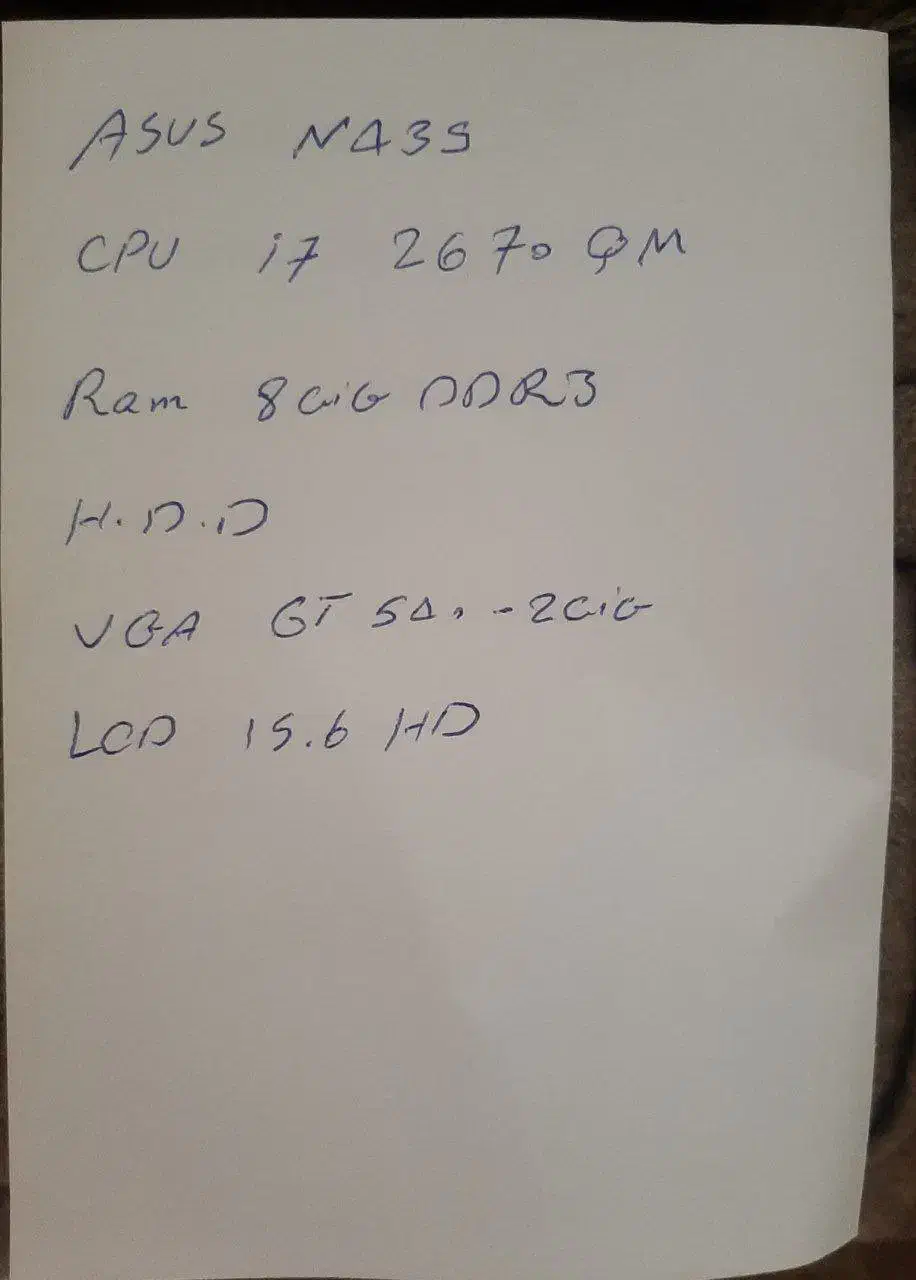 ASUS N43S
CPU i7 2670 QM
Ram 8GiG DDR3
H.D.D
VGA GT 540 - 2GiG
LCD 15.6 HD